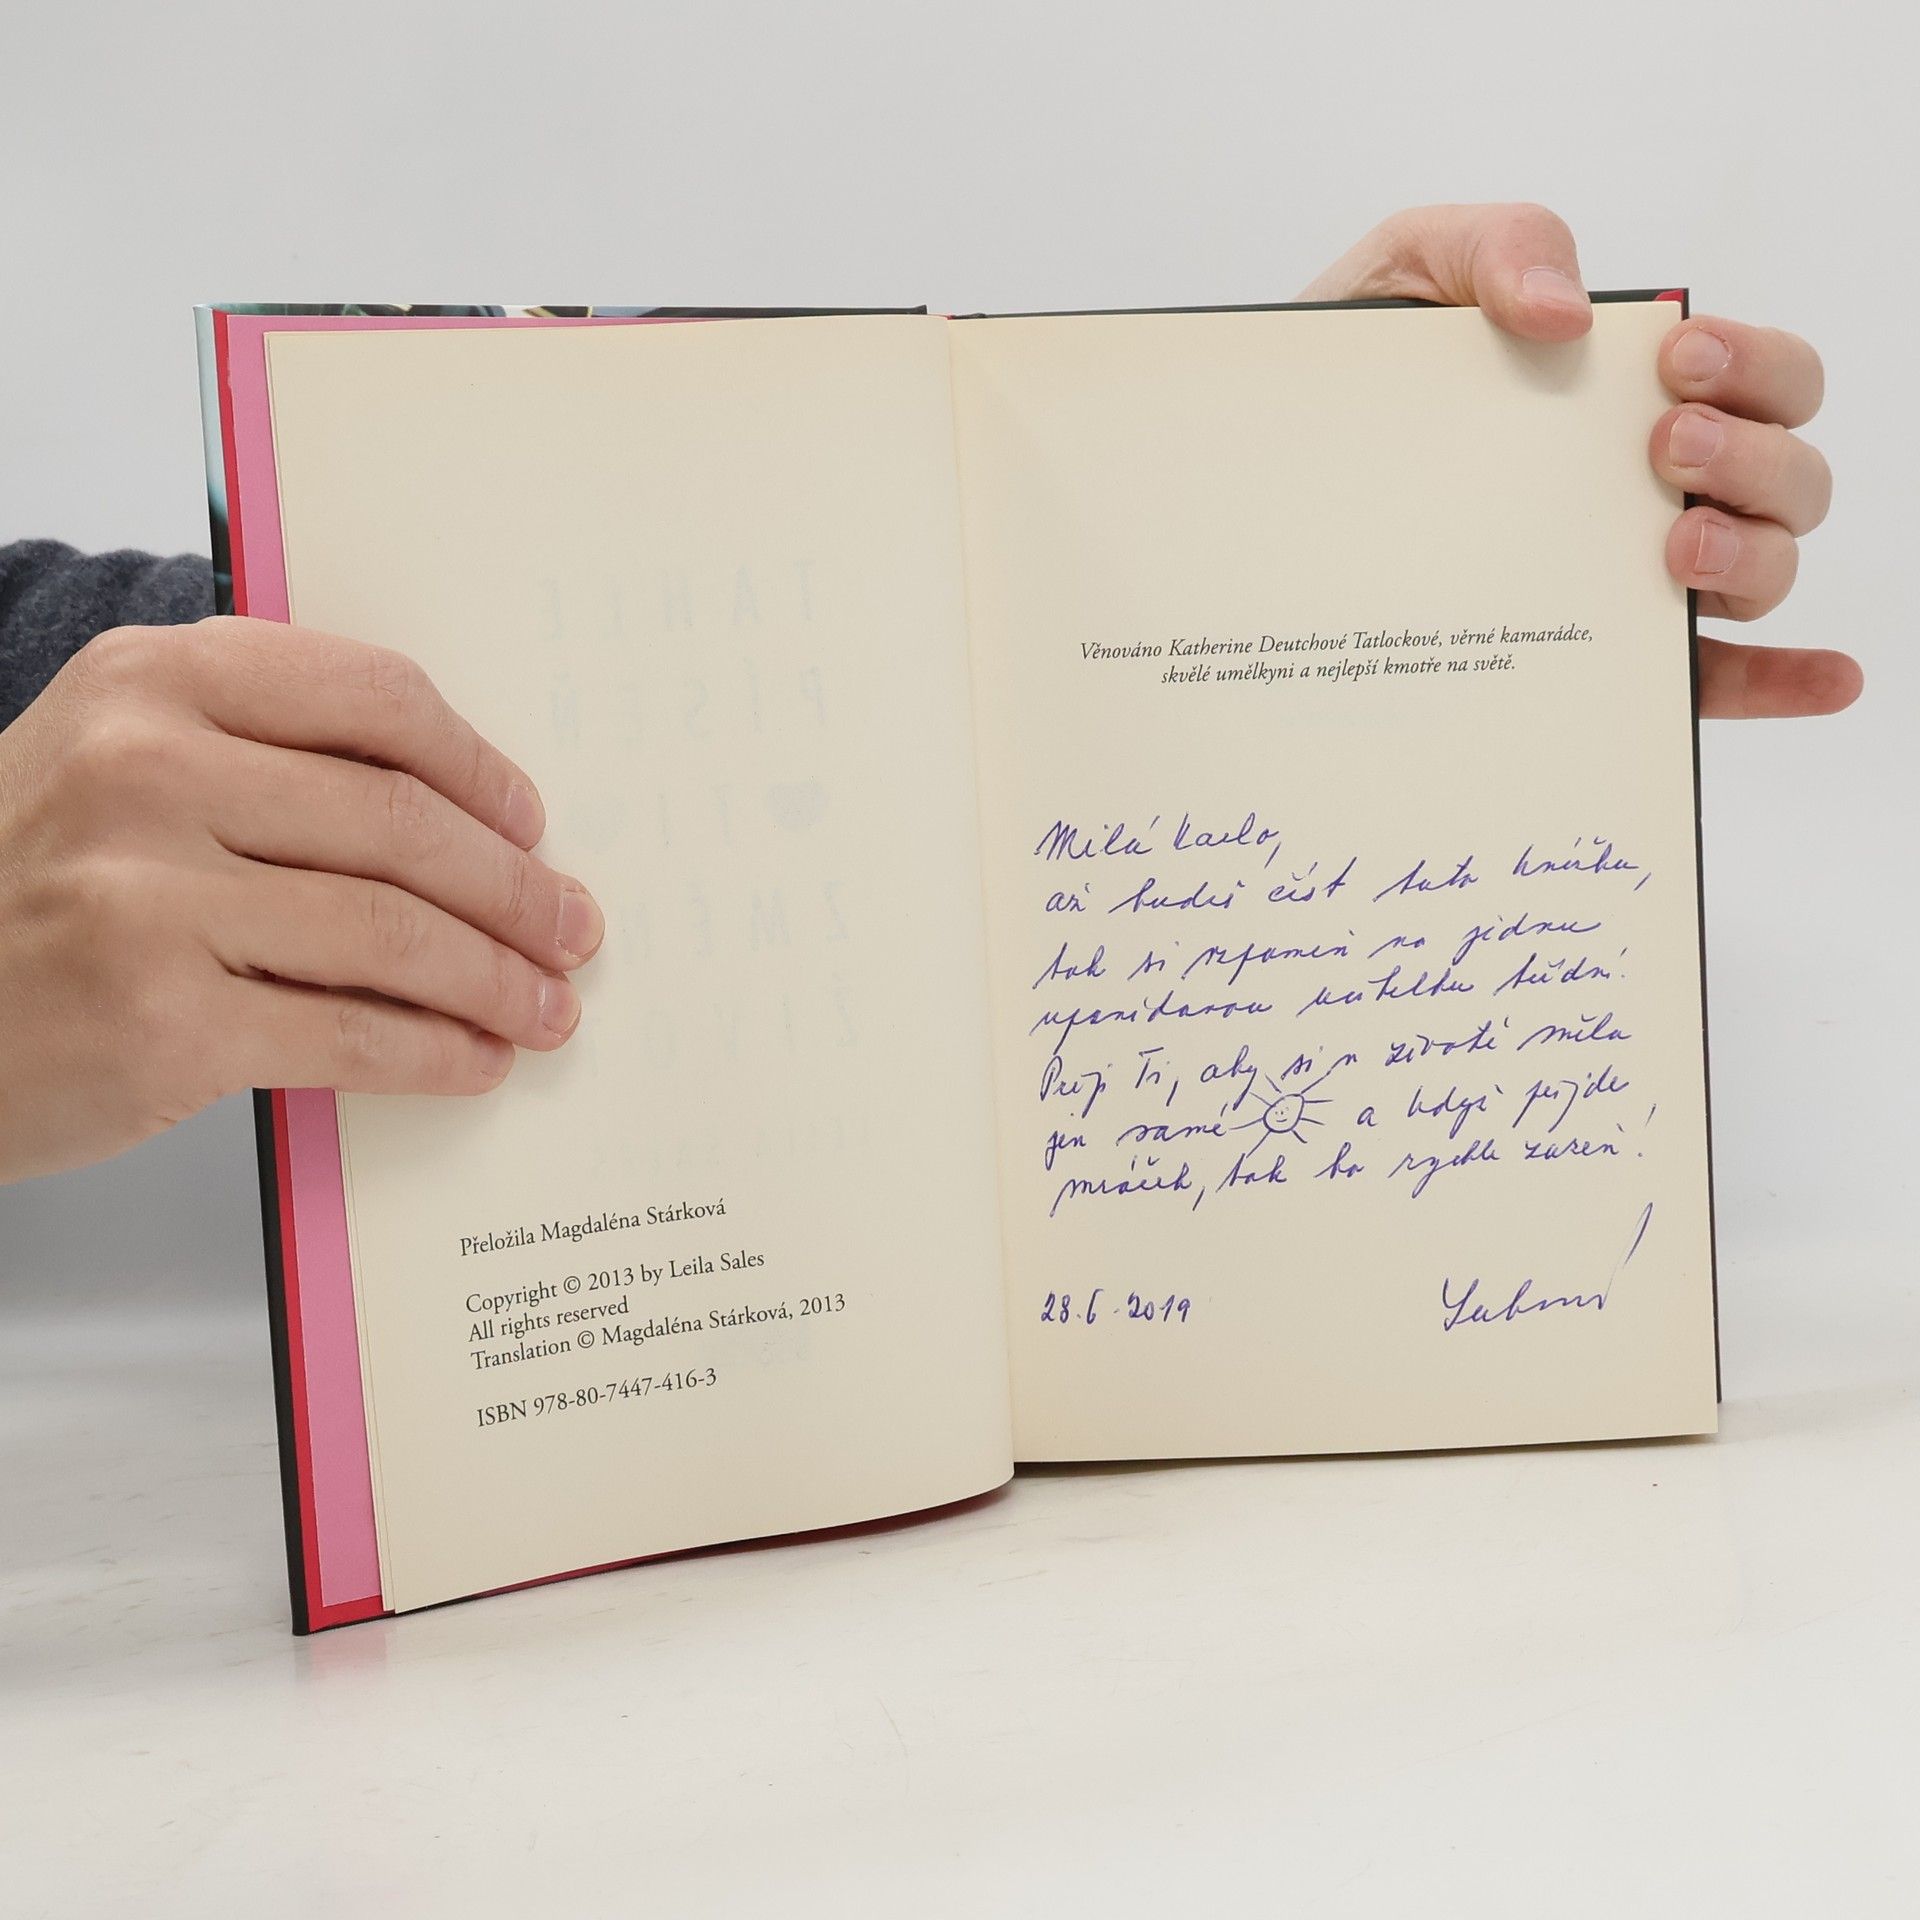 Přeložila Magdaléna Stárková
Copyright © 2013 by Leila Sales
All rights reserved
Translation © Magdaléna Stárková, 2013
ISBN 978-80-7447-416-3
Věnováno Katherine Deutchové Tatlockové, věrné kamarádce,
skvělé umělkyni a nejlepší kmotře na světě.
Milá Karlo,
až budeš číst tuto knížku,
tak si vzpomeň na jednu
upovídanou učitelku třídní.
Přeji Ti, aby si v životě měla
jen samé a když přijde
mráček, tak ho rychle zažeň!
28.6.2019